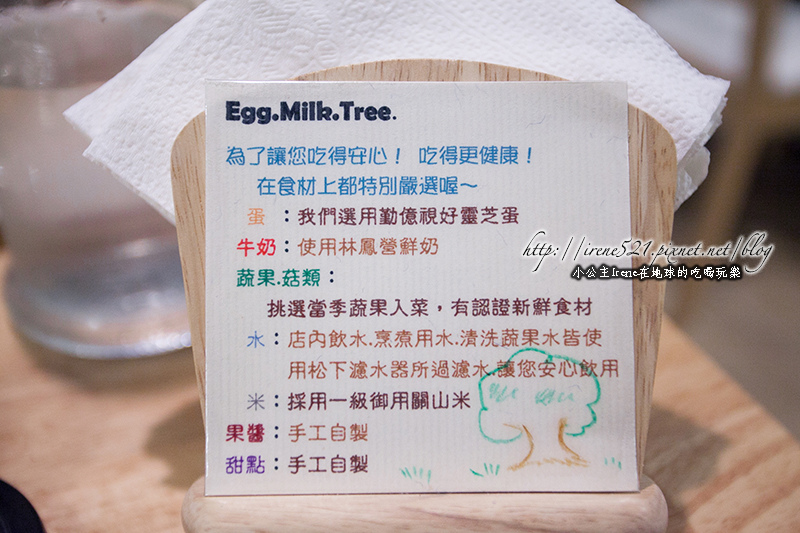 Egg.Milk.Tree.
為了讓您吃得安心！ 吃得更健康！
在食材上都特別嚴選喔～
蛋 ：我們選用勤億視好靈芝蛋
牛奶：使用林鳳營鮮奶
http://irene521.pixnet.net/blog
小公主Irene在地球的吃喝玩樂
蔬果.菇類：
挑選當季蔬果入菜，有認證新鮮食材
水：店內飲水.烹煮用水.清洗蔬果水皆使
用松下濾水器所過濾水.讓您安心飲用
米：採用一級御用關山米
果醬：手工自製
甜點：手工自製